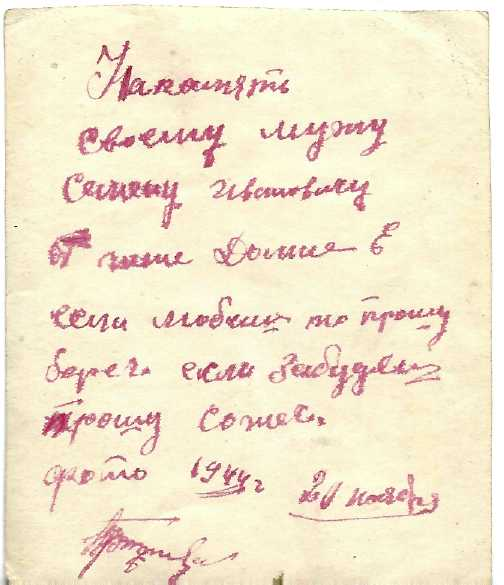 На память
своему мужу
Семену Ивановичу
от
если любиш то прошу
береч. если забудеш
прошу сожеч.
фото 1944 г 20 ноября